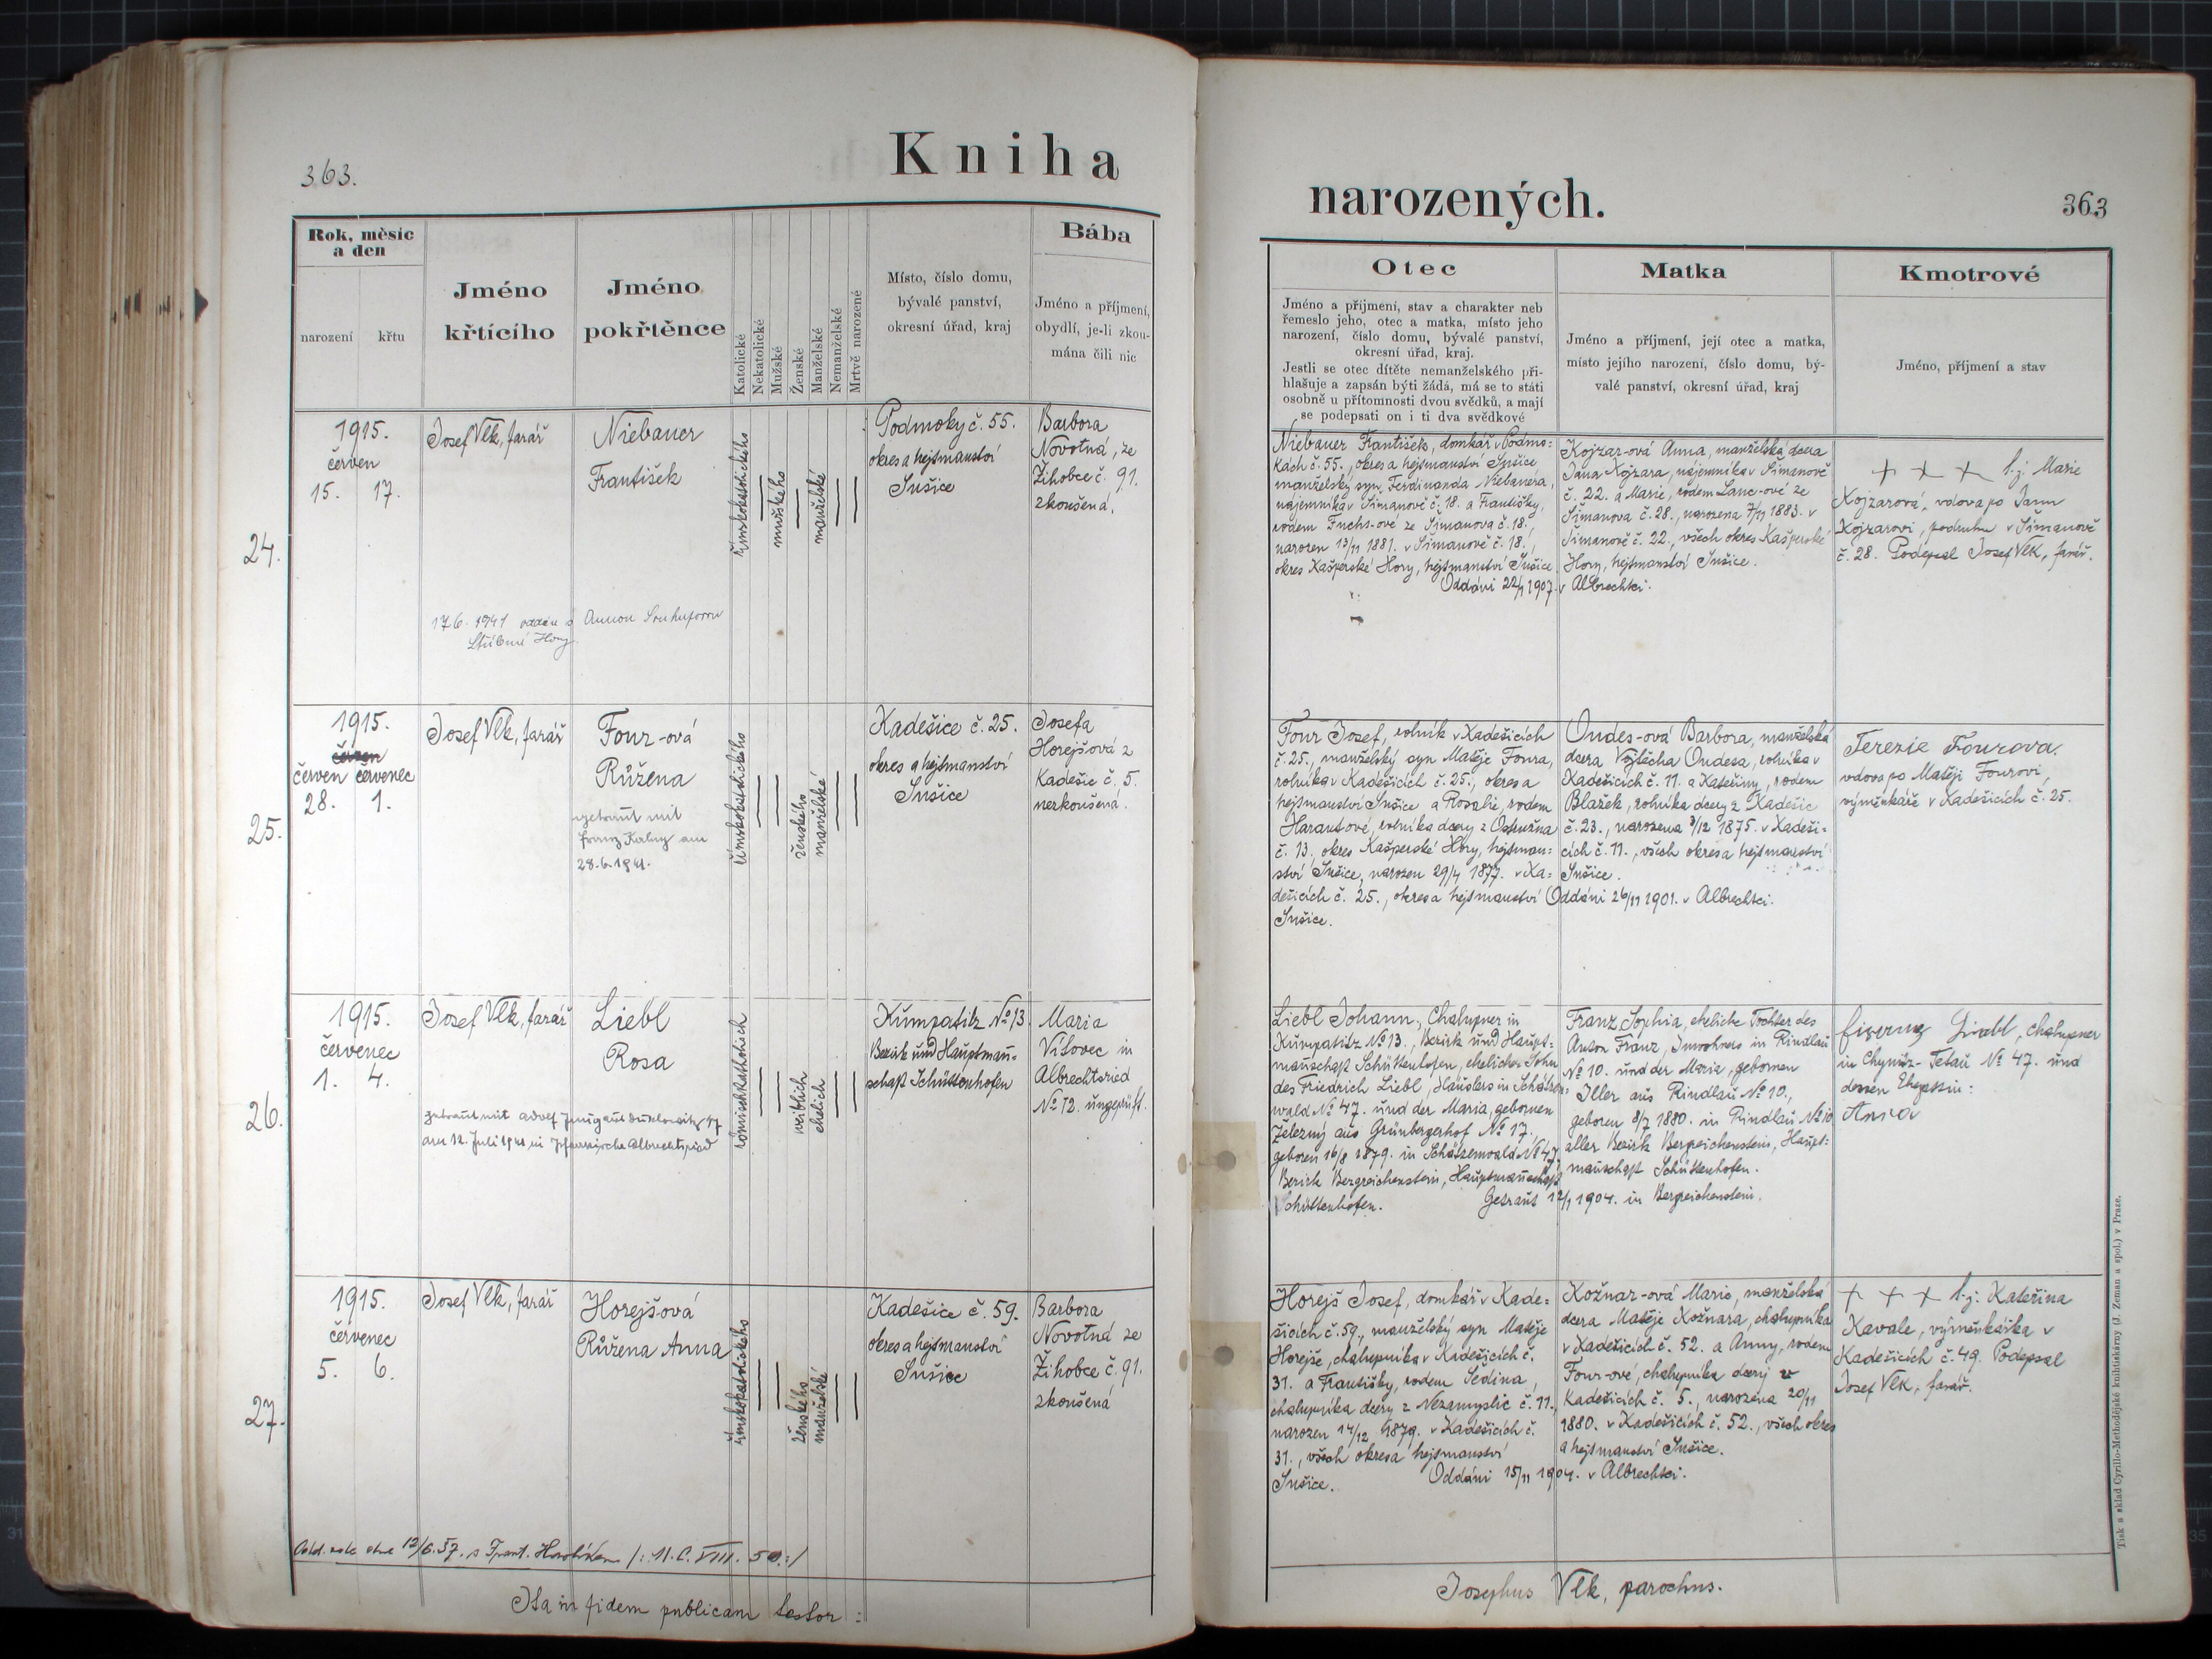 363.
Kniha
Rok, měsíc
a den
narození
křtu
Jméno
křtícího
Jméno
pokřtěnce
Katolické
Nekatolické
Mužské
Ženské
Manželské
Nemanželské
Mrtvě narozené
Místo, číslo domu,
bývalé panství,
okresní úřad, kraj
Bába
Jméno a příjmení,
obydlí, je-li zkou-
mána čili nic
24.
1915.
červen
15. 17.
Josef Vlk, farář
Niebauer
František
římskokatolického
mužského
manželské
Podmoky č. 55.
okres a hejtmanství
Sušice
Barbora
Novotná, ze
Žihobce č. 91.
zkoušená.
17.6. 1941 oddán s Annou
Stříbrné Hory
25.
1915.
červen červenec
28. 1.
Josef Vlk, farář
Four-ová
Růžena
getraut mit
Franz am
28.6.1941.
římskokatolického
ženského
manželské
Kadešice č. 25.
okres a hejtmanství
Sušice
Josefa
Horejšová z
Kadešic č. 5.
nezkoušená.
26.
1915.
červenec
1. 4.
Josef Vlk, farář
Liebl
Rosa
getraut mit Adolf
am 12. Juli 1941 in Pfarrkirche Albrechtsried
römischkatholisch
weiblich
ehelich
Kumpatitz No 13.
Bezirk und Hauptmann-
schaft Schüttenhofen
Maria
Vítovec in
Albrechtsried
No 12. ungeprüft.
27.
1915.
červenec
5. 6.
Josef Vlk, farář
Horejšová
Růžena Anna
římskokatolického
ženského
manželské
Kadešice č. 59.
okres a hejtmanství
Sušice
Barbora
Novotná ze
Žihobce č. 91.
zkoušená
dne 12/6.37. s Frant. /: 11.C. VIII. 50:/
Ita in fidem publicam testor:
narozených.
363
Otec
Jméno a příjmení, stav a charakter neb
řemeslo jeho, otec a matka, místo jeho
narození, číslo domu, bývalé panství,
okresní úřad, kraj.
Jestli se otec dítěte nemanželského při-
hlašuje a zapsán býti žádá, má se to státi
osobně u přítomnosti dvou svědků, a mají
se podepsati on i ti dva svědkové
Matka
Jméno a příjmení, její otec a matka,
místo jejího narození, číslo domu, bý-
valé panství, okresní úřad, kraj
Kmotrové
Jméno, příjmení a stav
Niebauer František, domkář v Podmo-
kách č. 55., okres a hejtmanství Sušice
manželský syn Ferdinanda Niebauera,
nájemníka v Šimanově č. 18. a Františky,
rodem Fuchs-ové ze Šimanova č. 18.,
narozen 13/11 1881. v Šimanově č. 18.,
okres Kašperské Hory, hejtmanství Sušice.
Kojzar-ová Anna, manželská dcera
Jana Kojzara, nájemníka v Šimanově
č. 22. a Marie, rodem Lanc-ové ze
Šimanova č. 28., narozena 7/11 1883. v
Šimanově č. 22., všech okres Kašperské
Hory, hejtmanství Sušice.
Oddáni 22/1 1907. v Albrechtci.
+ + + t.j. Marie
Kojzarová, vdova po Janu
Kojzarovi, podruhu v Šimanově
č. 28. Podepsal Josef Vlk, farář.
Four Josef, rolník v Kadešicích
č. 25., manželský syn Matěje Foura,
rolníka v Kadešicích č. 25., okres a
hejtmanství Sušice a Rosalie, rodem
Harantové, rolníka dcery z Ostružna
č. 13. okres Kašperské Hory, hejtman-
ství Sušice, narozen 29/4 1877. v Ka-
dešicích č. 25., okres a hejtmanství
Sušice.
Oudes-ová Barbora, manželská
dcera Vojtěcha Oudesa, rolníka v
Kadešicích č. 11. a Kateřiny, rodem
Blažek, rolníka dcery z Kadešic
č. 23., narozena 3/12 1875. v Kadeši-
cích č. 11., všech okres a hejtmanství
Sušice.
Oddáni 26/11 1901. v Albrechtci.
Terezie Fourova.
vdova po Matěji Fourovi,
výměnkáře v Kadešicích č. 25.
Liebl Johann, Chalupner in
Kumpatitz No 13., Bezirk und Haupt-
mannschaft Schüttenhofen, ehelicher Sohn
des Friedrich Liebl, Häuslers in Schätzen-
wald No 47. und der Maria, gebornen
Železný aus Grünbergerhof No 17.
geboren 16/8 1879. in Schätzenwald No 47,
Bezirk Bergreichenstein, Hauptmannschaft
Schüttenhofen.
Franz Sophia, eheliche Tochter des
Anton Franz, Inwohners in Rindlau
No 10. und der Maria, gebornen
Iller aus Rindlau No 10.,
geboren 8/7 1880. in Rindlau No 10
aller Bezirk Bergreichenstein, Haupt-
mannschaft Schüttenhofen.
Getraut 12/1 1904. in Bergreichenstein.
Liebl, chalupner
in Chynitz-Tetau No 47. und
dessen Ehegattin:
Anna
Horejš Josef, domkář v Kade-
šicích č. 59., manželský syn Matěje
Horejše, chalupníka v Kadešicích č.
31. a Františky, rodem Šedina,
chalupníka dcery z Nezamyslic č. 11.,
narozen 14/12 1879. v Kadešicích č.
31., všech okres a hejtmanství
Sušice.
Kožnar-ová Marie, manželská
dcera Matěje Kožnara, chalupníka
v Kadešicích č. 52. a Anny, rodem
Four-ové, chalupníka dcery z
Kadešicích č. 5., narozena 20/11
1880. v Kadešicích č. 52., všech okres
a hejtmanství Sušice.
Oddáni 15/11 1904. v Albrechtci.
+ + + t.j. Kateřina
Kavale, výměnkářka v
Kadešicích č. 49. Podepsal
Josef Vlk, farář.
Josephus Vlk, parochus.
Tisk a sklad Cyrillo-Methodějské knihtiskárny (J. Zeman a spol.) v Praze.